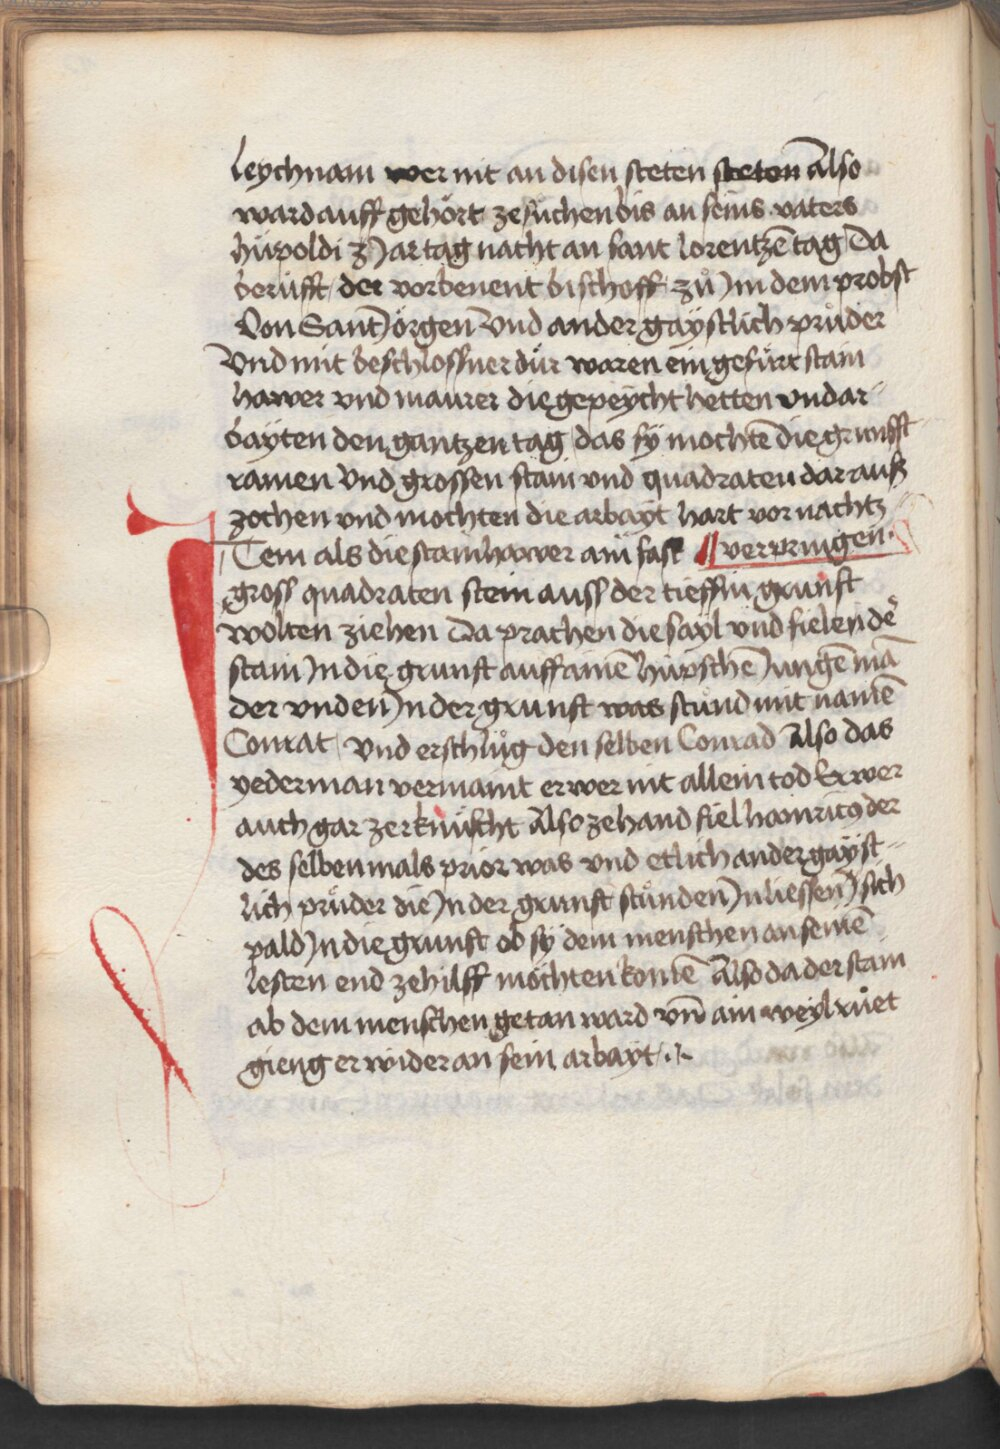 leychnam wer nit an disen steten steten Also
ward auff gehört ze sůchen bis an seins vaters
hüpoldi Jartag nacht an sant lorentzē tag Da
berüfft der vorbenent bischoff zů Jm dem probst
Von Sant Jörgen Vnd ander gaÿstlich prüder
Vnd mit beschlossner dür waren ein gefürt stain
hawer vnd maurer die gepeÿcht hetten vnd ar-
baÿten den gantzen tag das sÿ mochtē die grunfft
ramen Vnd grossen stain vnd quadraten dar auß
zochen vnd mochten die arbaÿt hart vor nachtz
ITem als die stainhawer ain fast verpringen.
gross quadraten stein auss der tieffin grunft
wolten ziehen Da prachen die saÿl vnd fielen dē
stain Jn die grunft auff ainē hüpschē Jungē mā
der vnden Jn der grunft was stůnd mit namē
Conrat Vnd erschlůg den selben Conrad Also das
yederman vermaint er wer nit allein tod Er wer
auch gar zerknüscht Also zehand fiel hainricus der
des selben mals prior was vnd etlich ander gaÿst-
lich prüder die Jn der grunft stůnden Jn liessen sich
pald Jn die grunft ob sÿ dem menschen an seinē
lesten end ze hilff möchten komē Also da der stain
ab dem menschen getan ward vn̄ ain weyl růet
gieng er wider an sein arbaÿt